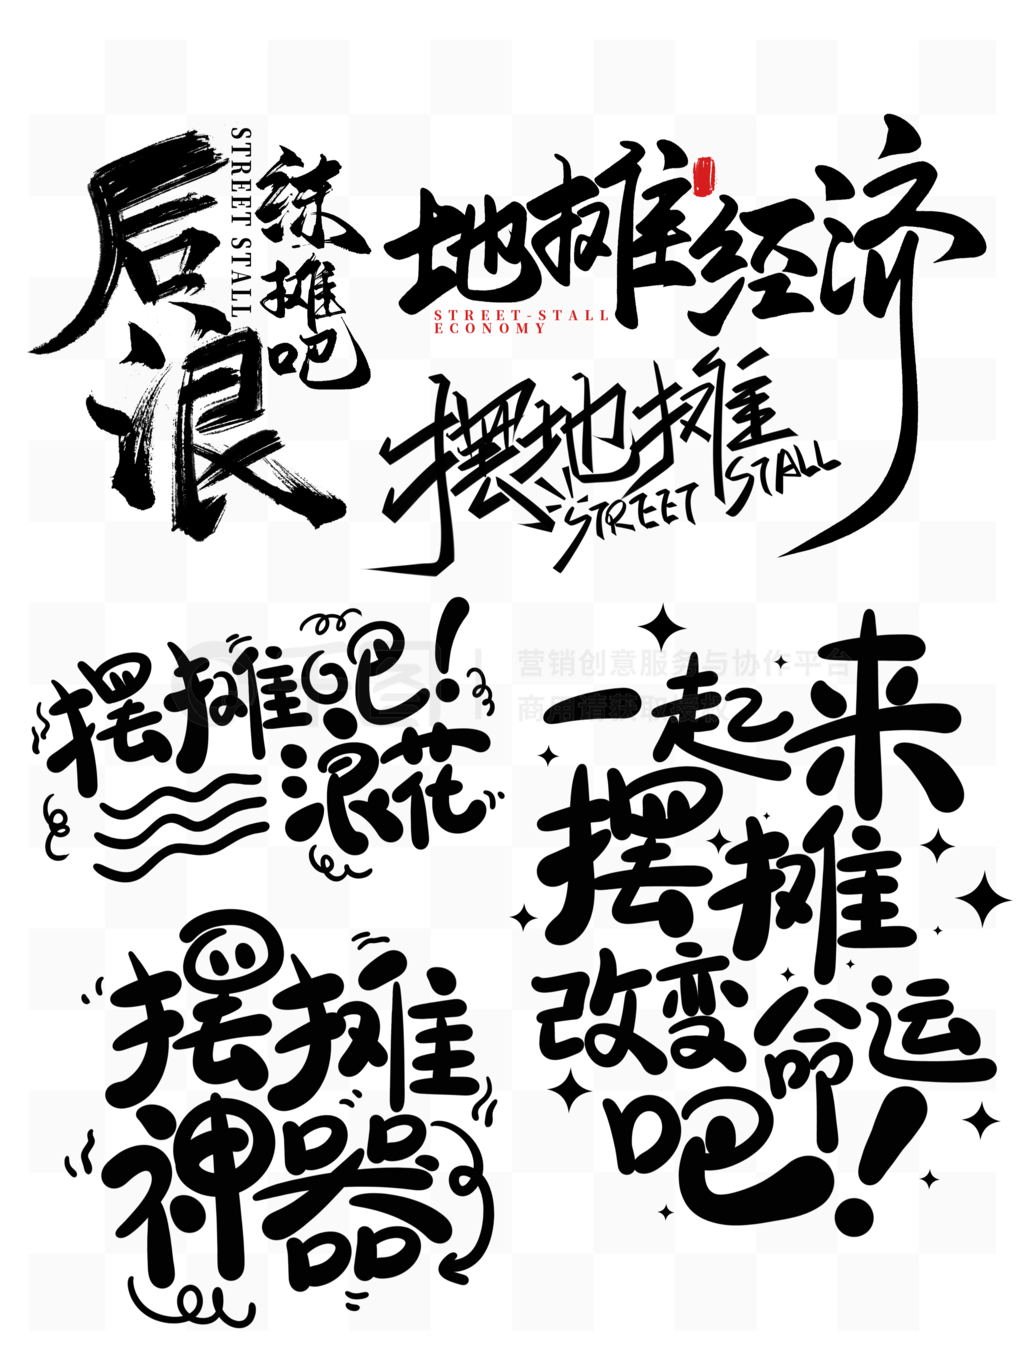 后浪
STREET STALL
练摊吧
地摊经济
STREET-STALL
ECONOMY
摆地摊
STREET STALL
摆摊吧!
浪花
一起来
摆摊
改变命运
吧!
摆摊
神器
营销创意服务与协作平台
商用请获取授权